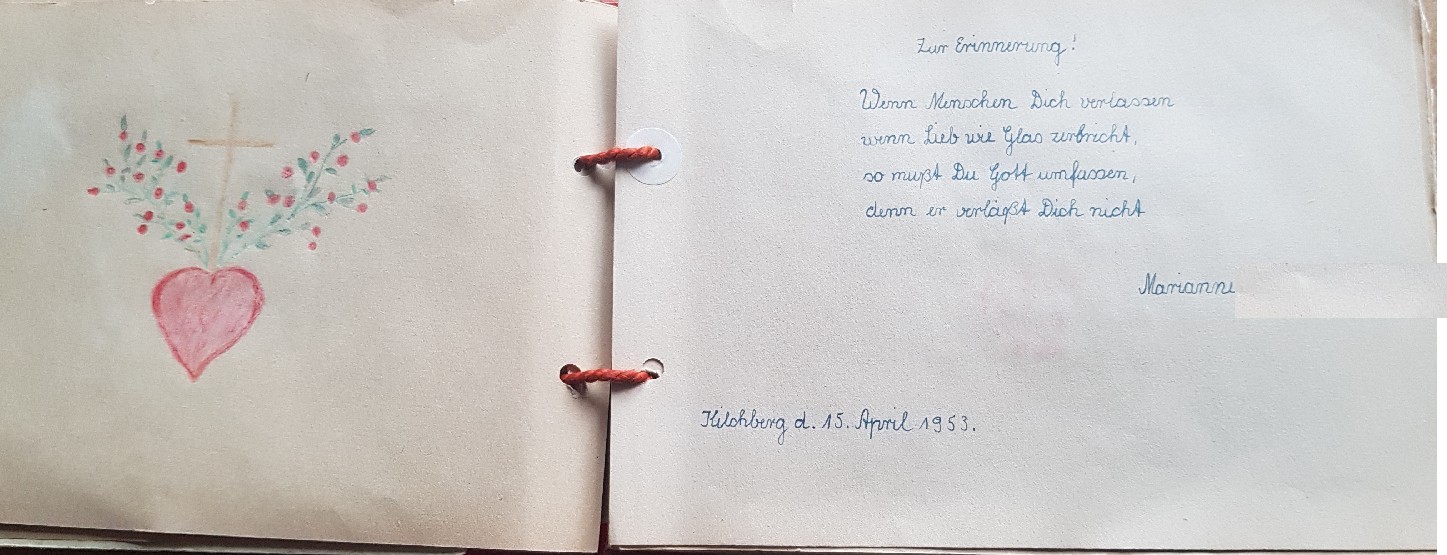 Zur Erinnerung!
Wenn Menschen Dich verlassen
wenn Lieb wie Glas zerbricht,
so mußt Du Gott umfassen,
denn er verläßt Dich nicht
Marianne
Kilchberg d. 15. April 1953.